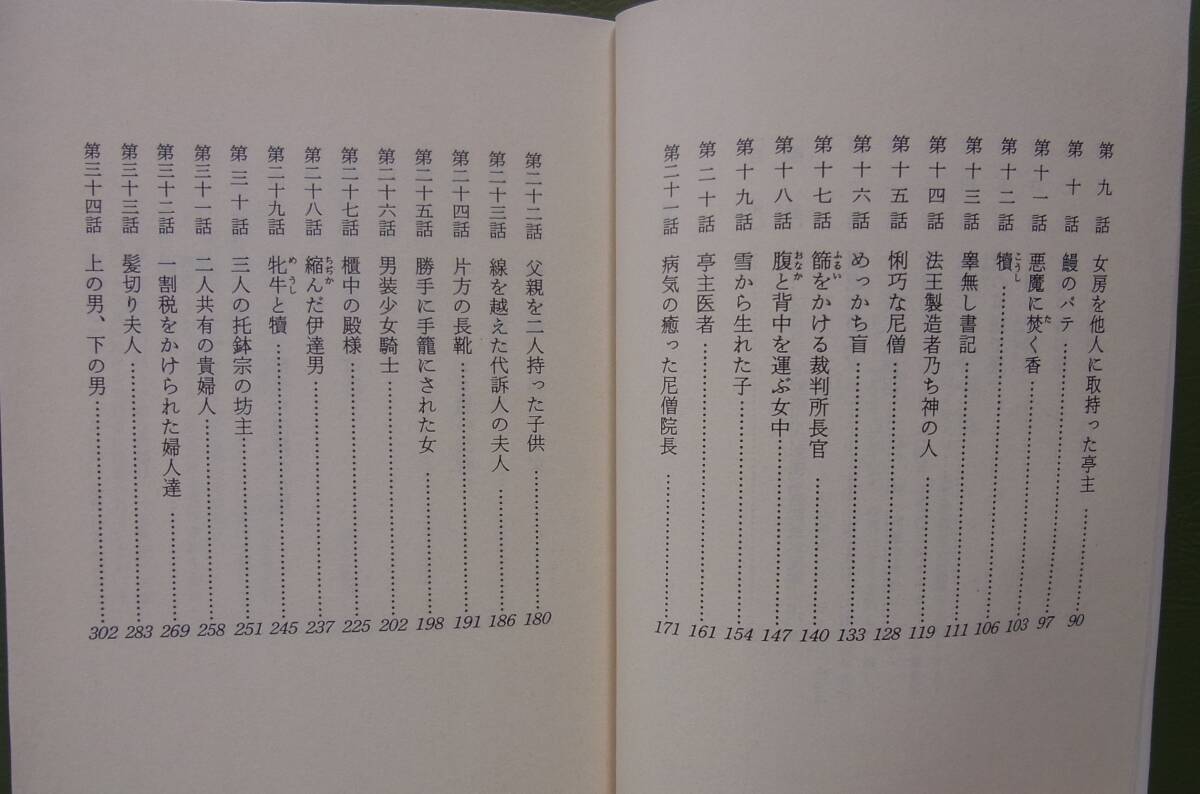 第九話 女房を他人に取持った亭主……90
第十話 鰻のパテ……97
第十一話 悪魔に焚く香……103
第十二話 犢……106
第十三話 睾無し書記……111
第十四話 法王製造者乃ち神の人……119
第十五話 悧巧な尼僧……128
第十六話 めっかち盲……133
第十七話 篩をかける裁判所長官……140
第十八話 腹と背中を運ぶ女中……147
第十九話 雪から生れた子……154
第二十話 亭主医者……161
第二十一話 病気の癒った尼僧院長……171
第二十二話 父親を二人持った子供……180
第二十三話 線を越えた代訴人の夫人……186
第二十四話 片方の長靴……191
第二十五話 勝手に手籠にされた女……198
第二十六話 男装少女騎士……202
第二十七話 櫃中の殿様……225
第二十八話 縮んだ伊達男……237
第二十九話 牝牛と犢……245
第三十話 三人の托鉢宗の坊主……251
第三十一話 二人共有の貴婦人……258
第三十二話 一割税をかけられた婦人達……269
第三十三話 髪切り夫人……283
第三十四話 上の男、下の男……302